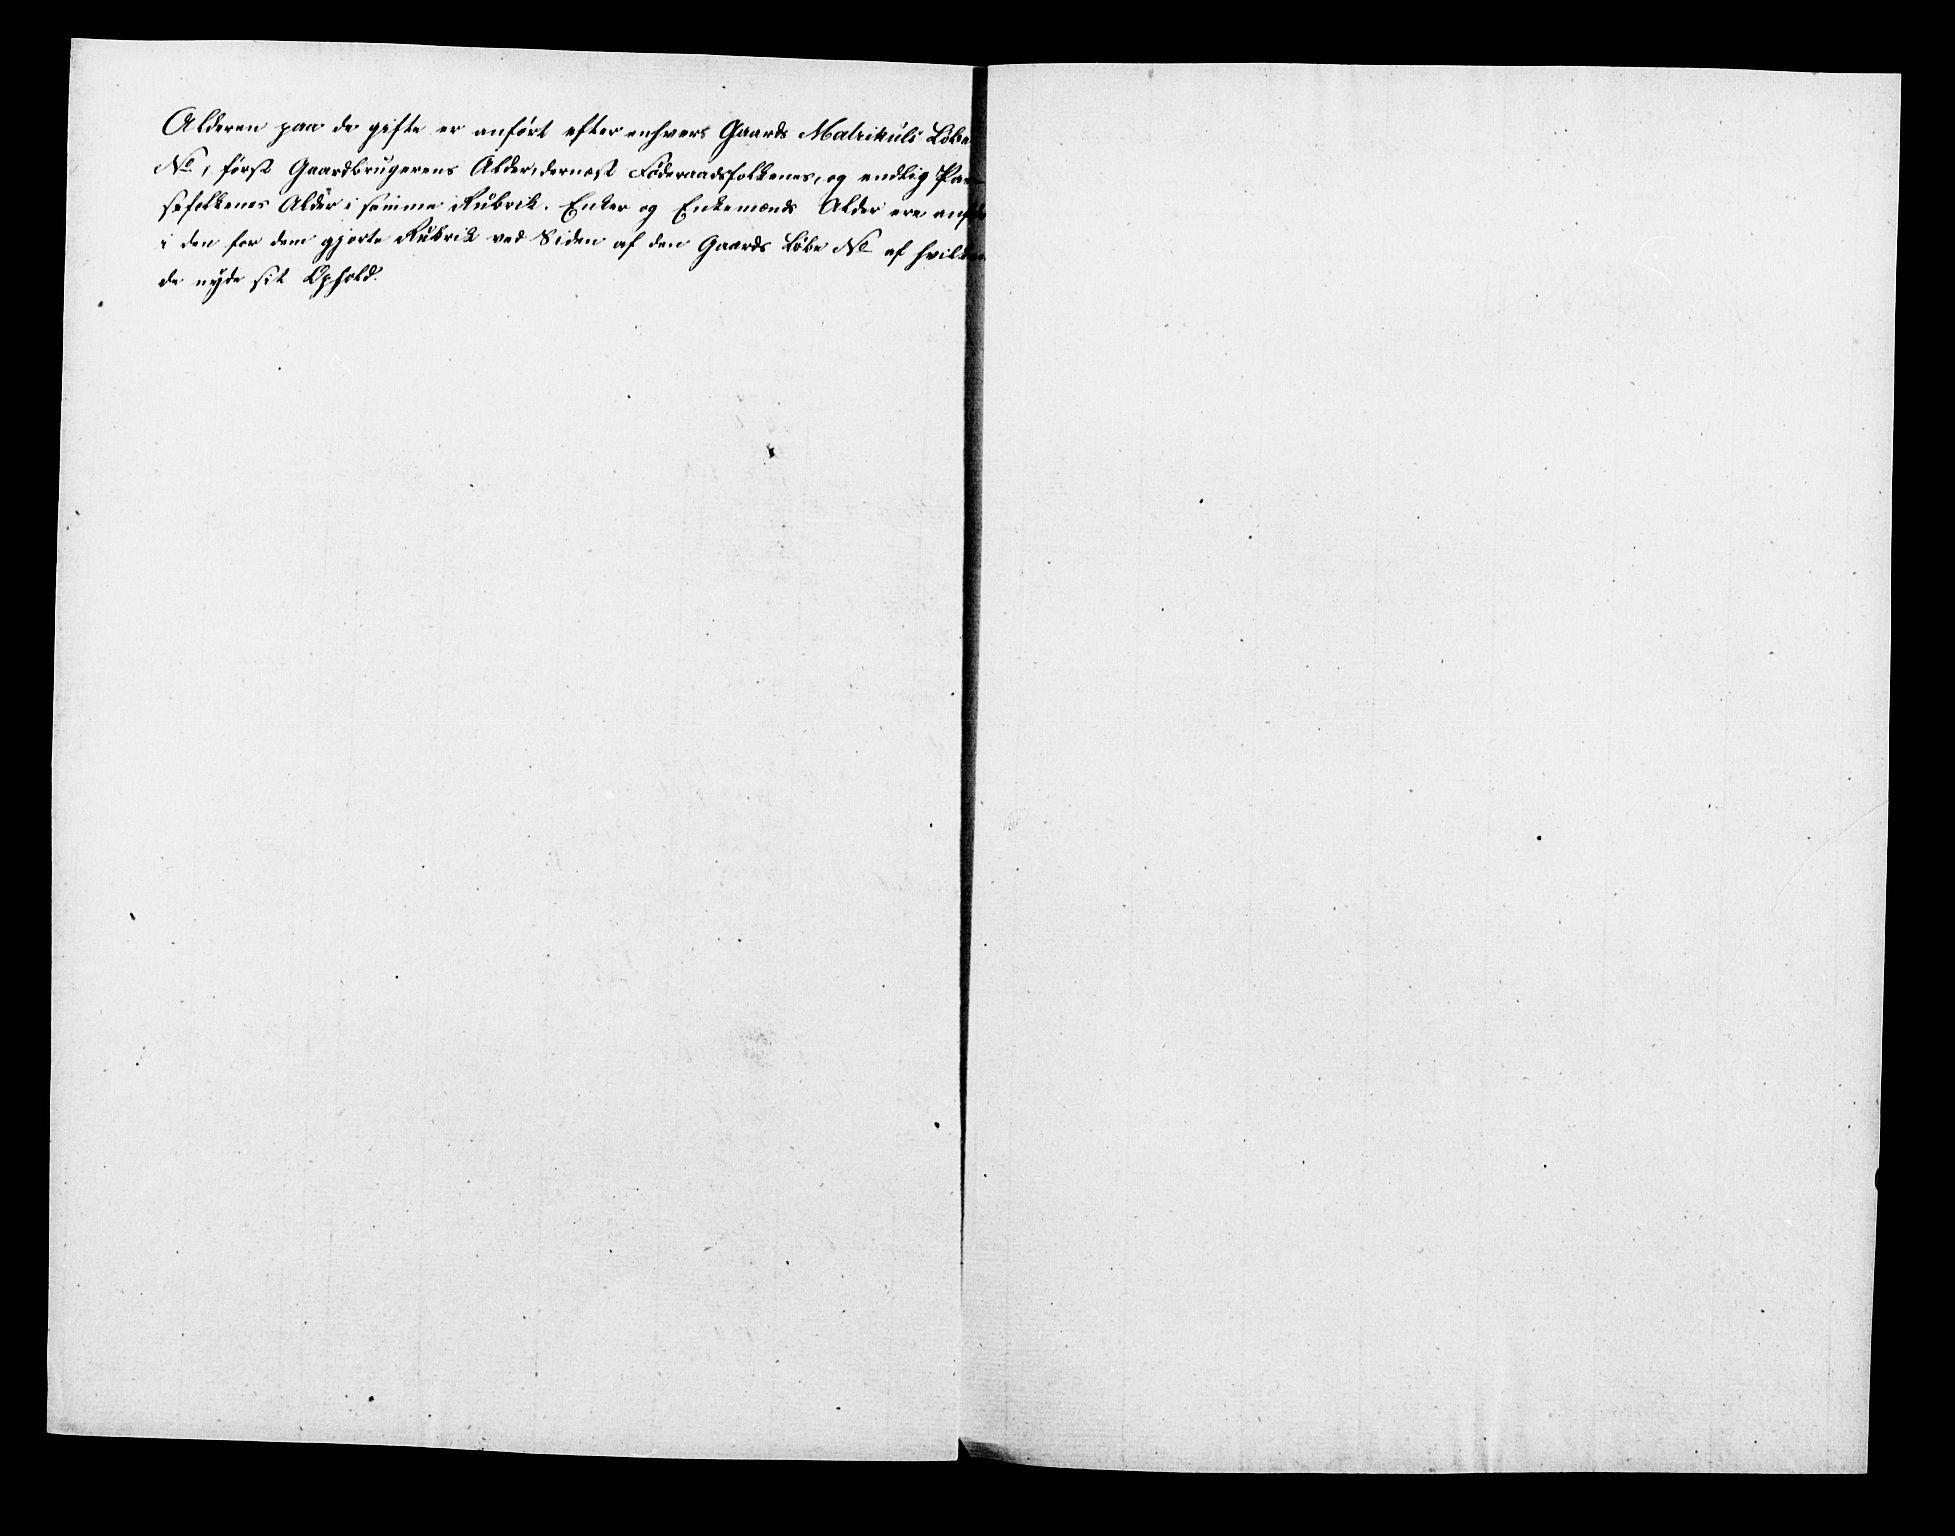 Alderen paa de gifte er anført efter enhvers Gaards Matrikuls Løbe
No, først Gaardbrugerens Alder, dernæst Føderaadsfolkenes, og endlig
sefolkenes Alder i samme Rubrik. Enker og Enkemænds Alder ere
i den for dem gjorte Rubrik ved Siden af den Gaards Løbe No af
de nyde sit Ophold.